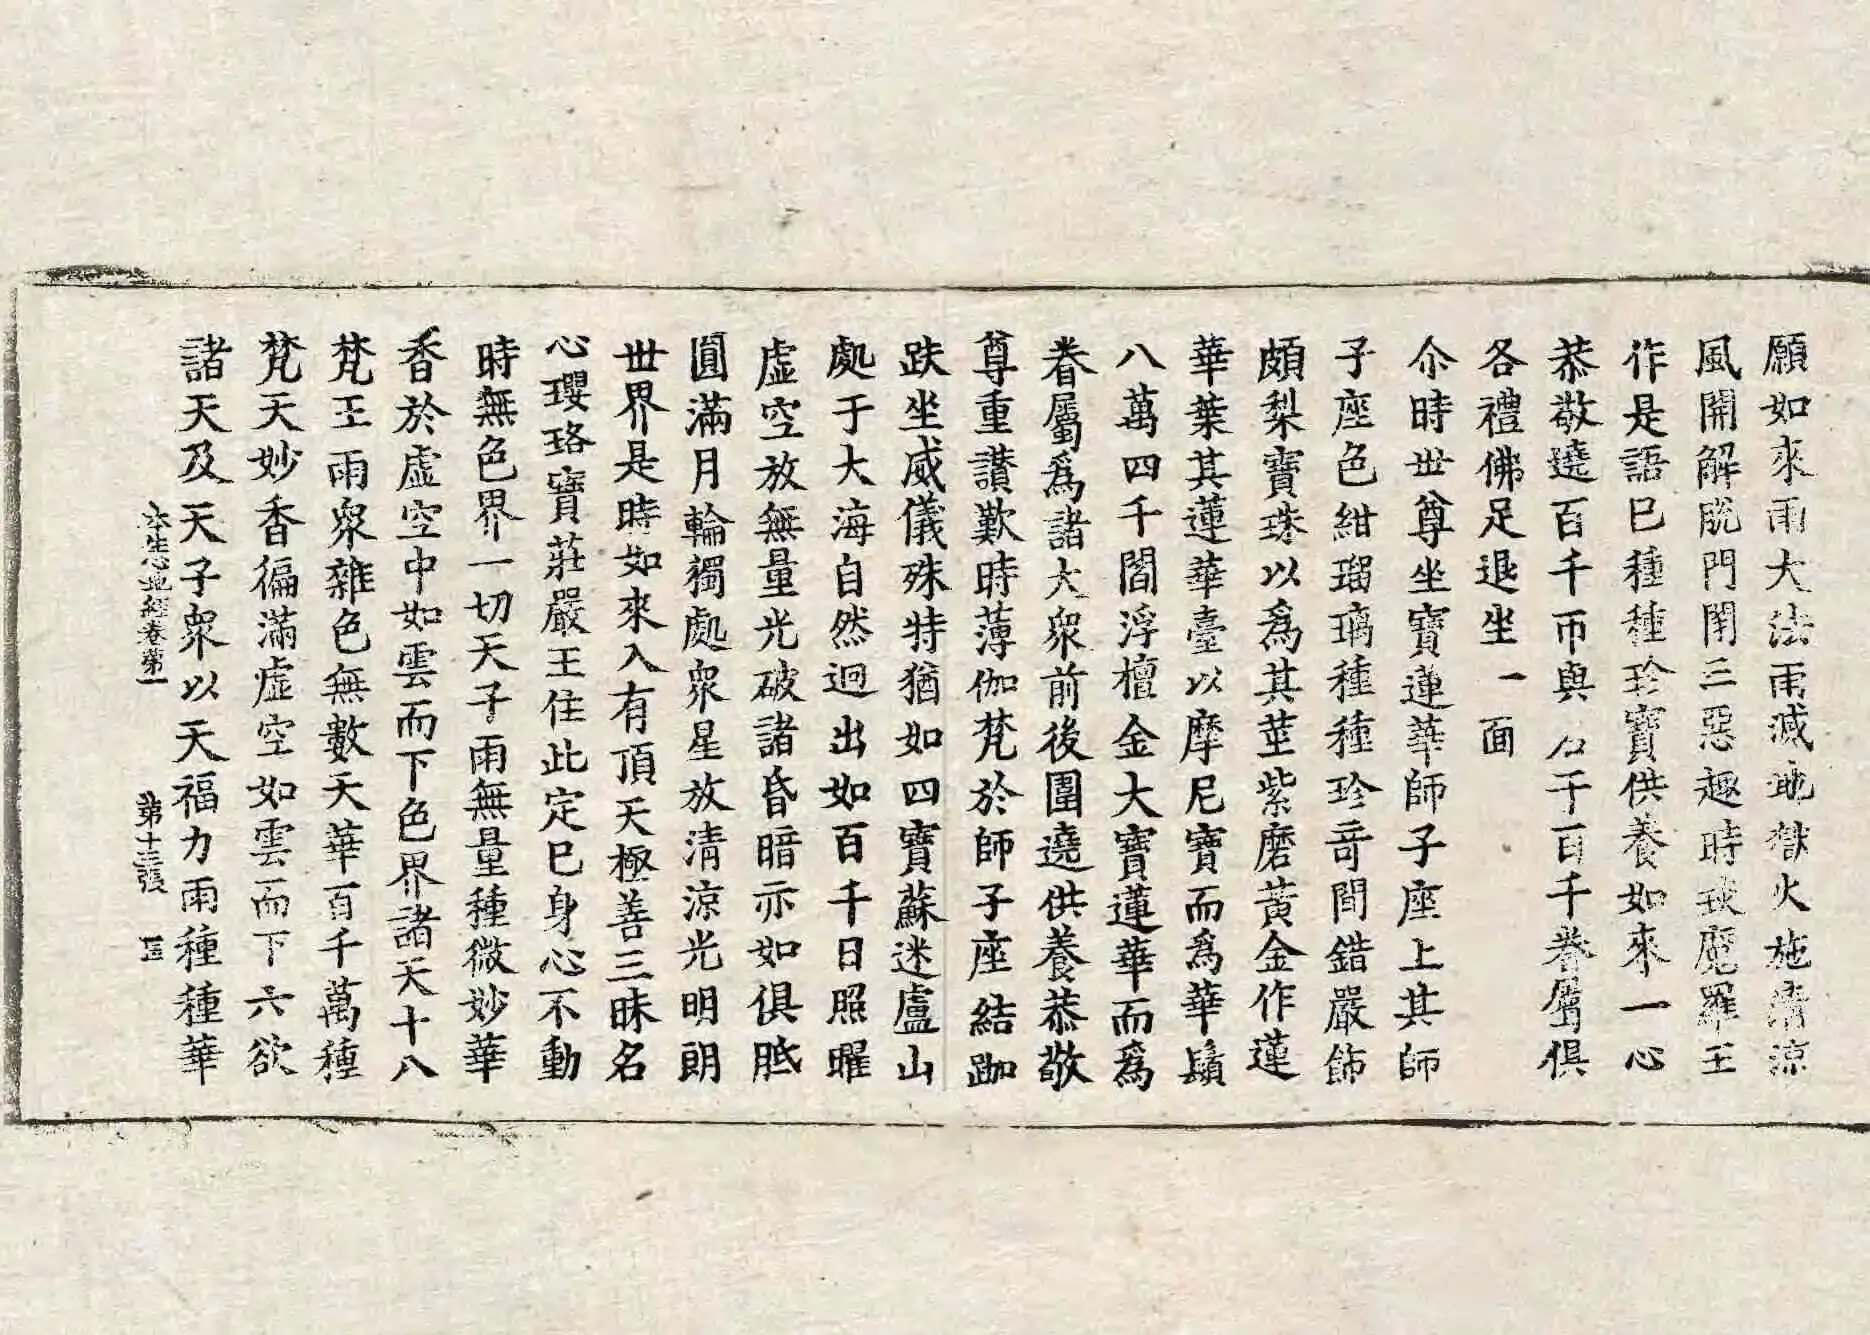 願如來雨大法雨滅地獄火施清涼
風開解脫門閇三惡趣時琰魔羅王
作是語已種種珍寶供養如來一心
恭敬遶百千帀與百千眷屬俱
各禮佛足退坐一面
尒時世尊坐寶蓮華師子座上其師
子座色紺瑠璃種種珍竒間錯嚴飾
頗梨寶珠以爲其莖紫磨黃金作蓮
華葉其蓮華臺以摩尼寶而爲華鬚
八萬四千閻浮檀金大寶蓮華而爲
眷屬爲諸大衆前後圍遶供養恭敬
尊重讃歎時薄伽梵於師子座結跏
趺坐威儀殊特猶如四寶蘇迷盧山
處于大海自然迥出如百千日照曜
虛空放無量光破諸昏暗亦如俱胝
圓滿月輪獨處衆星放清涼光明朗
世界是時如來入有頂天極善三昧名
心瓔珞寶莊嚴王住此定已身心不動
時無色界一切天子雨無量種微妙華
香於虛空中如雲而下色界諸天十八
梵王雨衆雜色無數天華百千萬種
梵天妙香徧滿虛空如雲而下六欲
諸天及天子衆以天福力雨種種華
本生心地經卷第一 第十三張